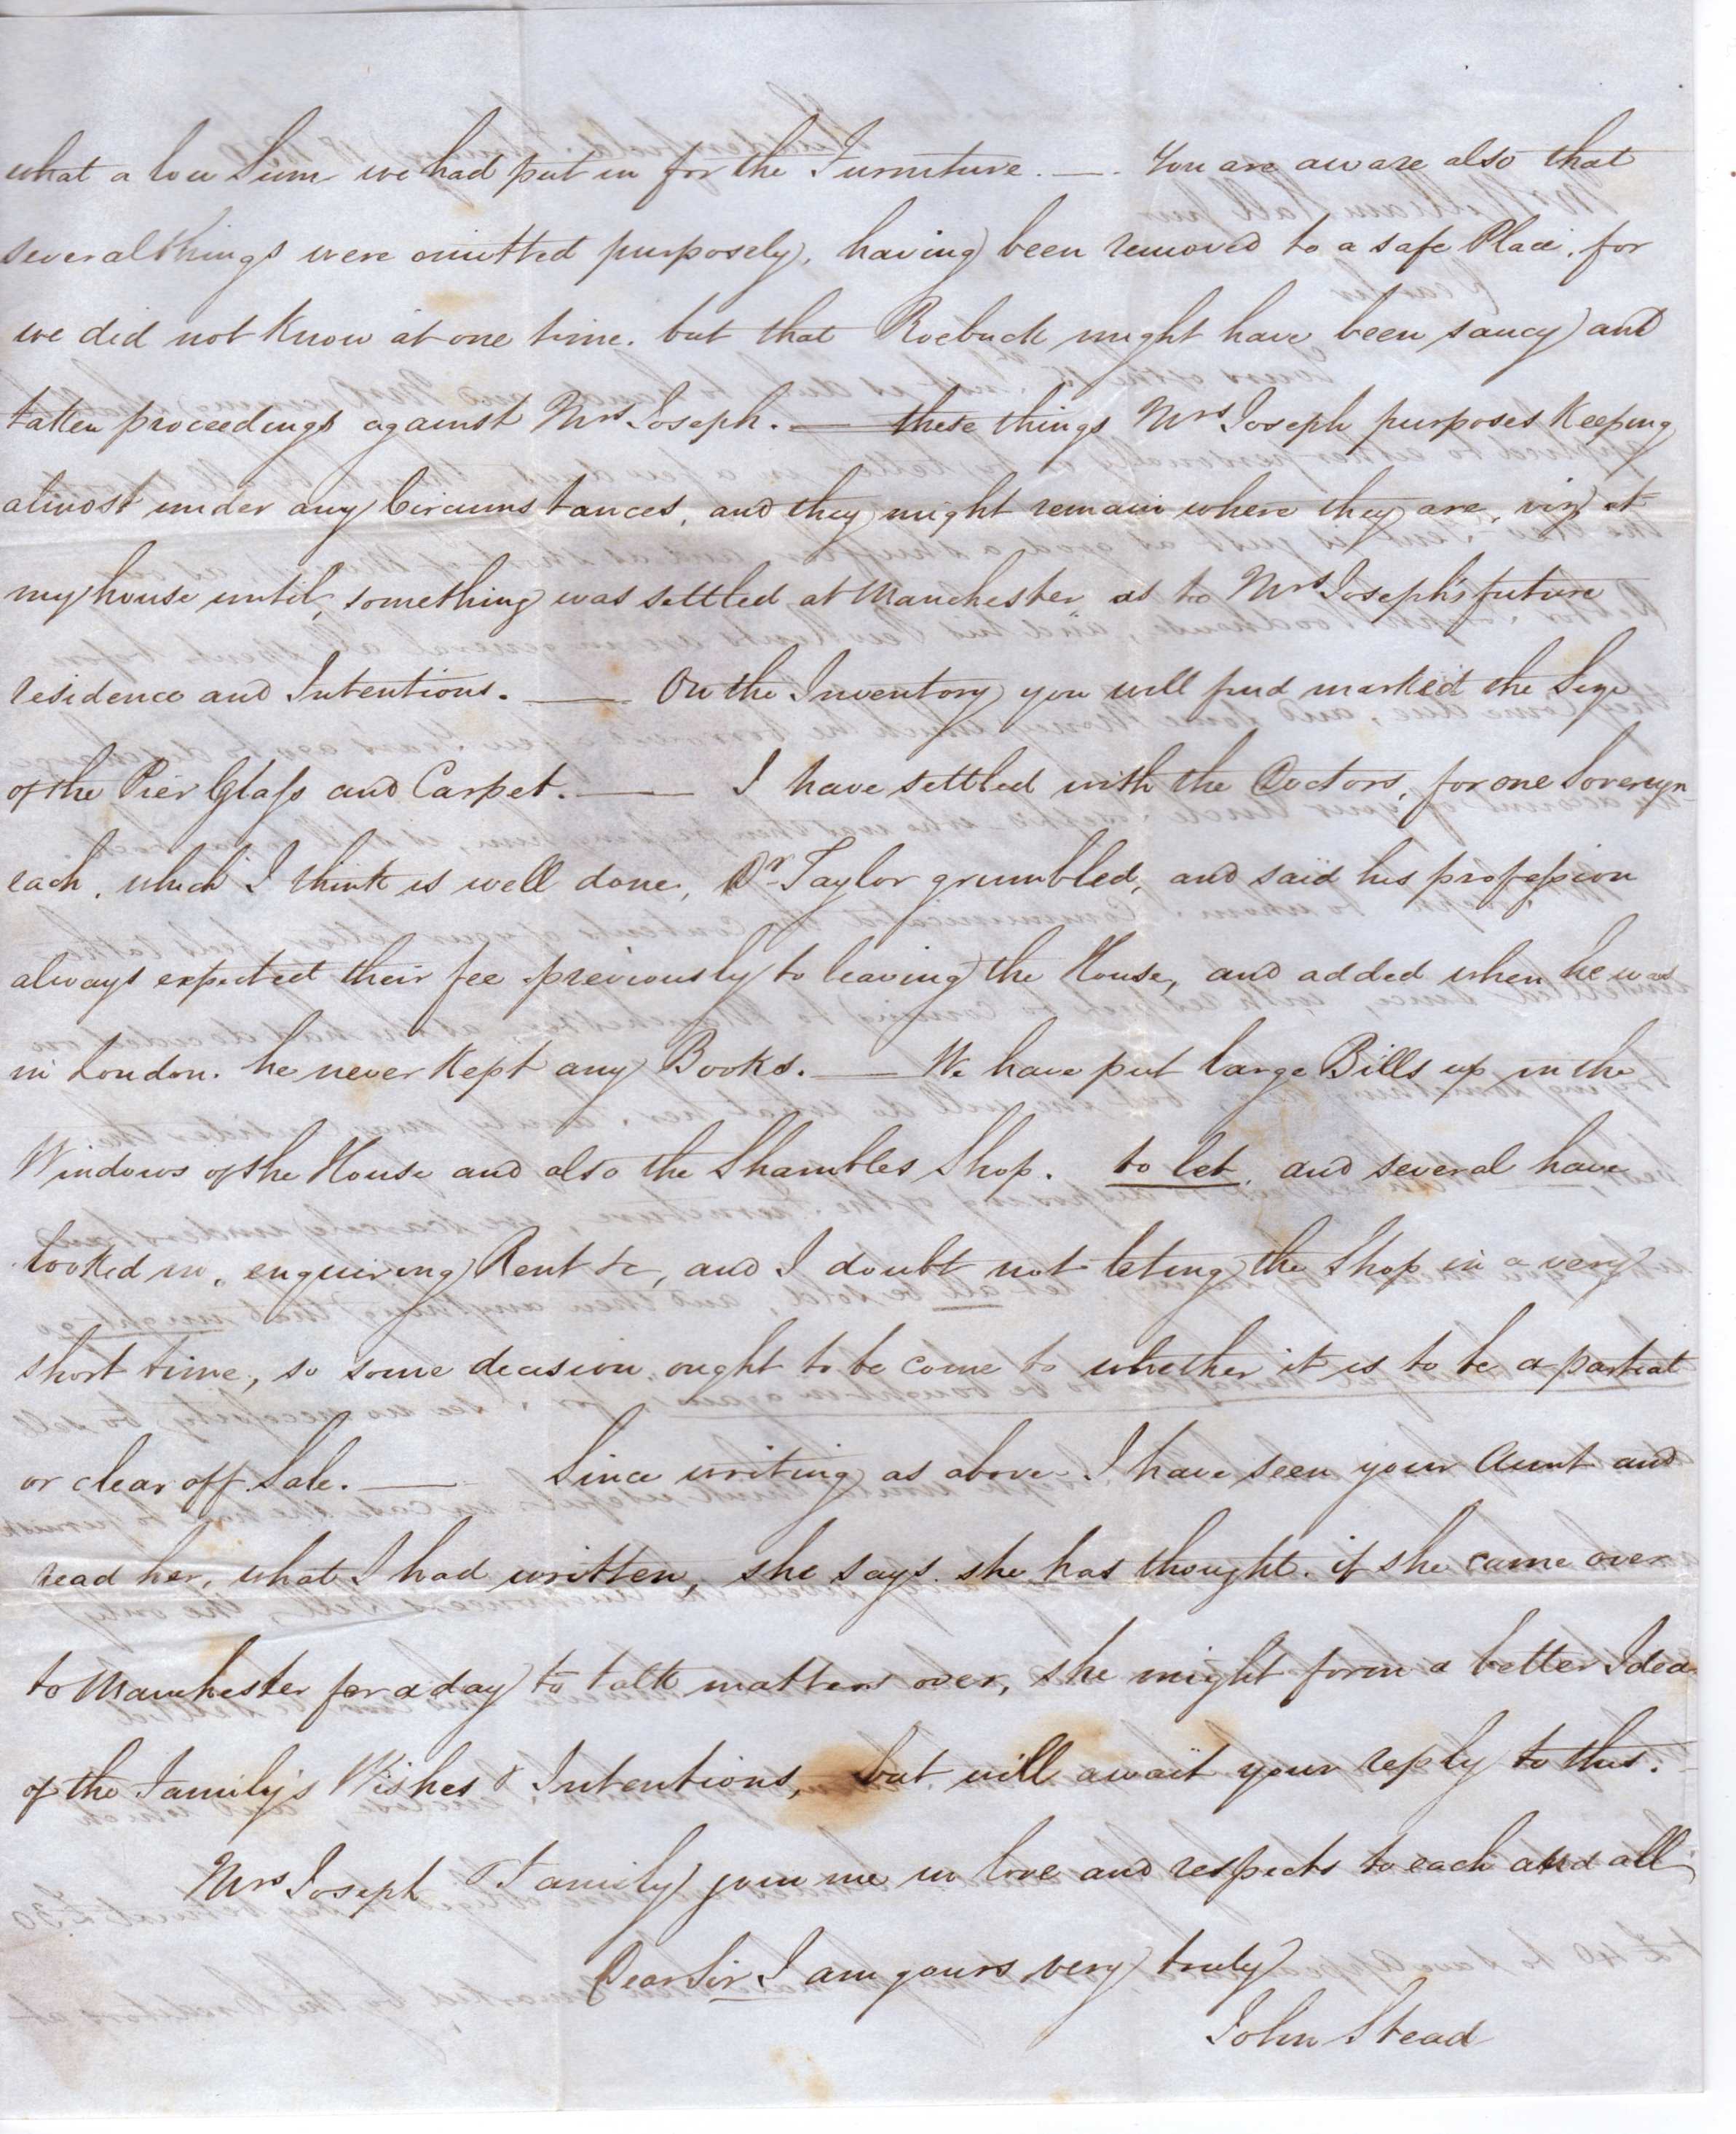 what a low Sum we had put in for the Furniture. — . You are aware also that
several things were omitted purposely, having been removed to a safe Place, for
we did not know at one time. but that Roebuck might have been saucy and
taken proceedings against Mrs Joseph. — these things Mrs Joseph purposes keeping
almost under any Circumstances, and they might remain where they are, viz at
my house until, something was settled at Manchester as to Mrs Joseph's future
residence and Intentions. — On the Inventory you will find marked the Size
of the Pier Glass and Carpet. — I have settled with the Doctors, for one Sovereign
each, which I think is well done, Dr Taylor grumbled, and said his profession
always expected their fee previously to leaving the House, and added when he was
in London. he never kept any Books. — We have put large Bills up in the
Windows of the House and also the Shambles Shop. to let, and several have
looked in, enquiring Rent &c, and I doubt not leting the Shop in a very
short time, so some decision, ought to be come to whether it is to be a partial
or clear off Sale. — Since writing as above I have seen your Aunt and
read her, what I had written, she says. she has thought. if she came over
to Manchester for a day to talk matters over, she might form a better Idea
of the Family's Wishes & Intentions, but will await your reply to this.
Mrs Joseph & Family join me in love and respects to each and all
Dear Sir I am yours very truly
John Stead